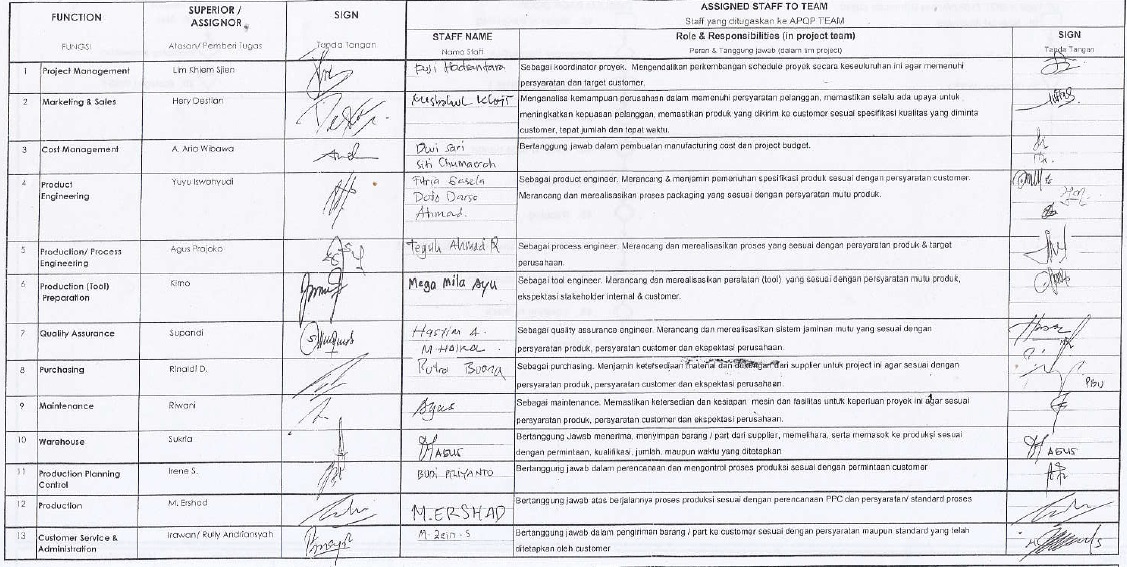 FUNCTION
SUPERIOR / ASSIGNOR
SIGN
ASSIGNED STAFF TO TEAM
Staff yang ditugaskan ke APQP TEAM
FUNGSI
Atasan/ Pemberi Tugas
Tanda Tangan
STAFF NAME
Nama Staff
Role & Responsibilities (in project team)
Peran & Tanggung jawab (dalam tim project)
SIGN
Tanda Tangan
1 Project Management Lim Khiem Sjien Sebagai koordinator proyek. Mengendalikan perkembangan schedule proyek secara keseluruhan ini agar memenuhi
persyaratan dan target customer.
2 Marketing & Sales Hery Destian Menganalisa kemampuan perusahaan dalam memenuhi persyaratan pelanggan, memastikan selalu ada upaya untuk
meningkatkan kepuasan pelanggan, memastikan produk yang dikirim ke customer sesuai spesifikasi kualitas yang diminta
customer, tepat jumlah dan tepat waktu.
3 Cost Management A. Ario Wibawa Dwi Sari Bertanggung jawab dalam pembuatan manufacturing cost dan project budget.
Siti Chumaeroh
4 Product Engineering Yuyu Iswahyudi Sebagai product engineer. Merancang & menjamin pemenuhan spesifikasi produk sesuai dengan persyaratan customer.
Merancang dan merealisasikan proses packaging yang sesuai dengan persyaratan mutu produk.
Ahmad.
5 Production/ Process Engineering Agus Prajoko Teguh Ahmad R Sebagai process engineer. Merancang dan merealisasikan proses yang sesuai dengan persyaratan produk & target
perusahaan.
6 Production (Tool) Preparation Kirno Mega Mila Ayu Sebagai tool engineer. Merancang dan merealisasikan peralatan (tool) yang sesuai dengan persyaratan mutu produk,
ekspektasi stakeholder internal & customer.
7 Quality Assurance Supandi Hastin A. Sebagai quality assurance engineer. Merancang dan merealisasikan sistem jaminan mutu yang sesuai dengan
M. HAIKAL persyaratan produk, persyaratan customer dan ekspektasi perusahaan.
8 Purchasing Rinaldi D. Putra Buana Sebagai purchasing. Menjamin ketersediaan material dan dukungan dari supplier untuk project ini agar sesuai dengan
persyaratan produk, persyaratan customer dan ekspektasi perusahaan.
9 Maintenance Riwani Agus Sebagai maintenance. Memastikan ketersedian dan kesiapan mesin dan fasilitas untuk keperluan proyek ini agar sesuai
persyaratan produk, persyaratan customer dan ekspektasi perusahaan.
10 Warehouse Sukria AGUS Bertanggung Jawab menerima, menyimpan barang / part dari supplier, memelihara, serta memasok ke produksi sesuai
dengan permintaan, kualifikasi, jumlah, maupun waktu yang ditetapkan AGUS
11 Production Planning Control Irene S. BUDI PRIYANTO Bertanggung jawab dalam perencanaan dan mengontrol proses produksi sesuai dengan permintaan customer
12 Production M. Ershad M.ERSHAD Bertanggung jawab atas berjalannya proses produksi sesuai dengan perencanaan PPC dan persyaratan/ standard proses
13 Customer Service & Administration Irawan/ Rully Andriansyah M. Zein. S Bertanggung jawab dalam pengiriman barang / part ke customer sesuai dengan persyaratan maupun standard yang telah
ditetapkan oleh customer